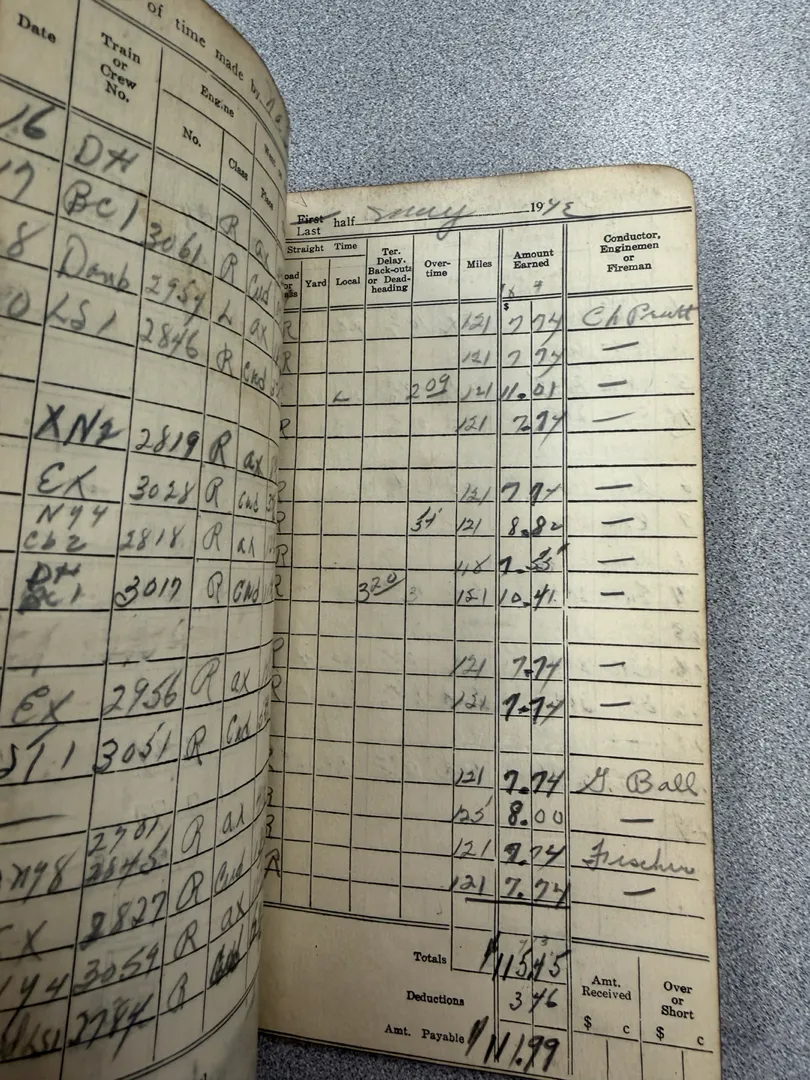 of time made by
Date Train or Crew No. Engine
No. Class
16 DH
17 BC1 3061 R ax
8 Danb 2954 R Cnd
0 LS1 2846 L ax
R Cnd
XN2 2819 R ax
EX 3028 R Cnd
NY4
Cb2 2818 R ax
DH
BC1 3017 R Cnd
EX 2956 R ax
ST1 3051 R Cnd
2701 R ax
NY8 2845
EX 2827 R Cnd
Y4 3059 R ax
2784 R
First
Last half May 1942
Straight Time
Road or Pass Yard Local Ter. Delay. Back-outs or Dead-heading Over-time Miles Amount Earned Conductor, Enginemen or Fireman
$
R 121 7 74 Ch Pratt
R 121 7 74 —
L 2 09 121 11.01 —
R 121 7.74 —
R 121 7 74 —
R 34 121 8.82 —
R 48 —
R 3 20 121 10.41 —
R 121 7.74 —
R 121 7.74 —
R 121 7.74 G. Ball
R 125 8.00 —
R 121 7.74 Fischer
R 121 7.74 —
Totals 115.45
Deductions 3 46
Amt. Payable 111.99
Amt. Received Over or Short
$ c $ c